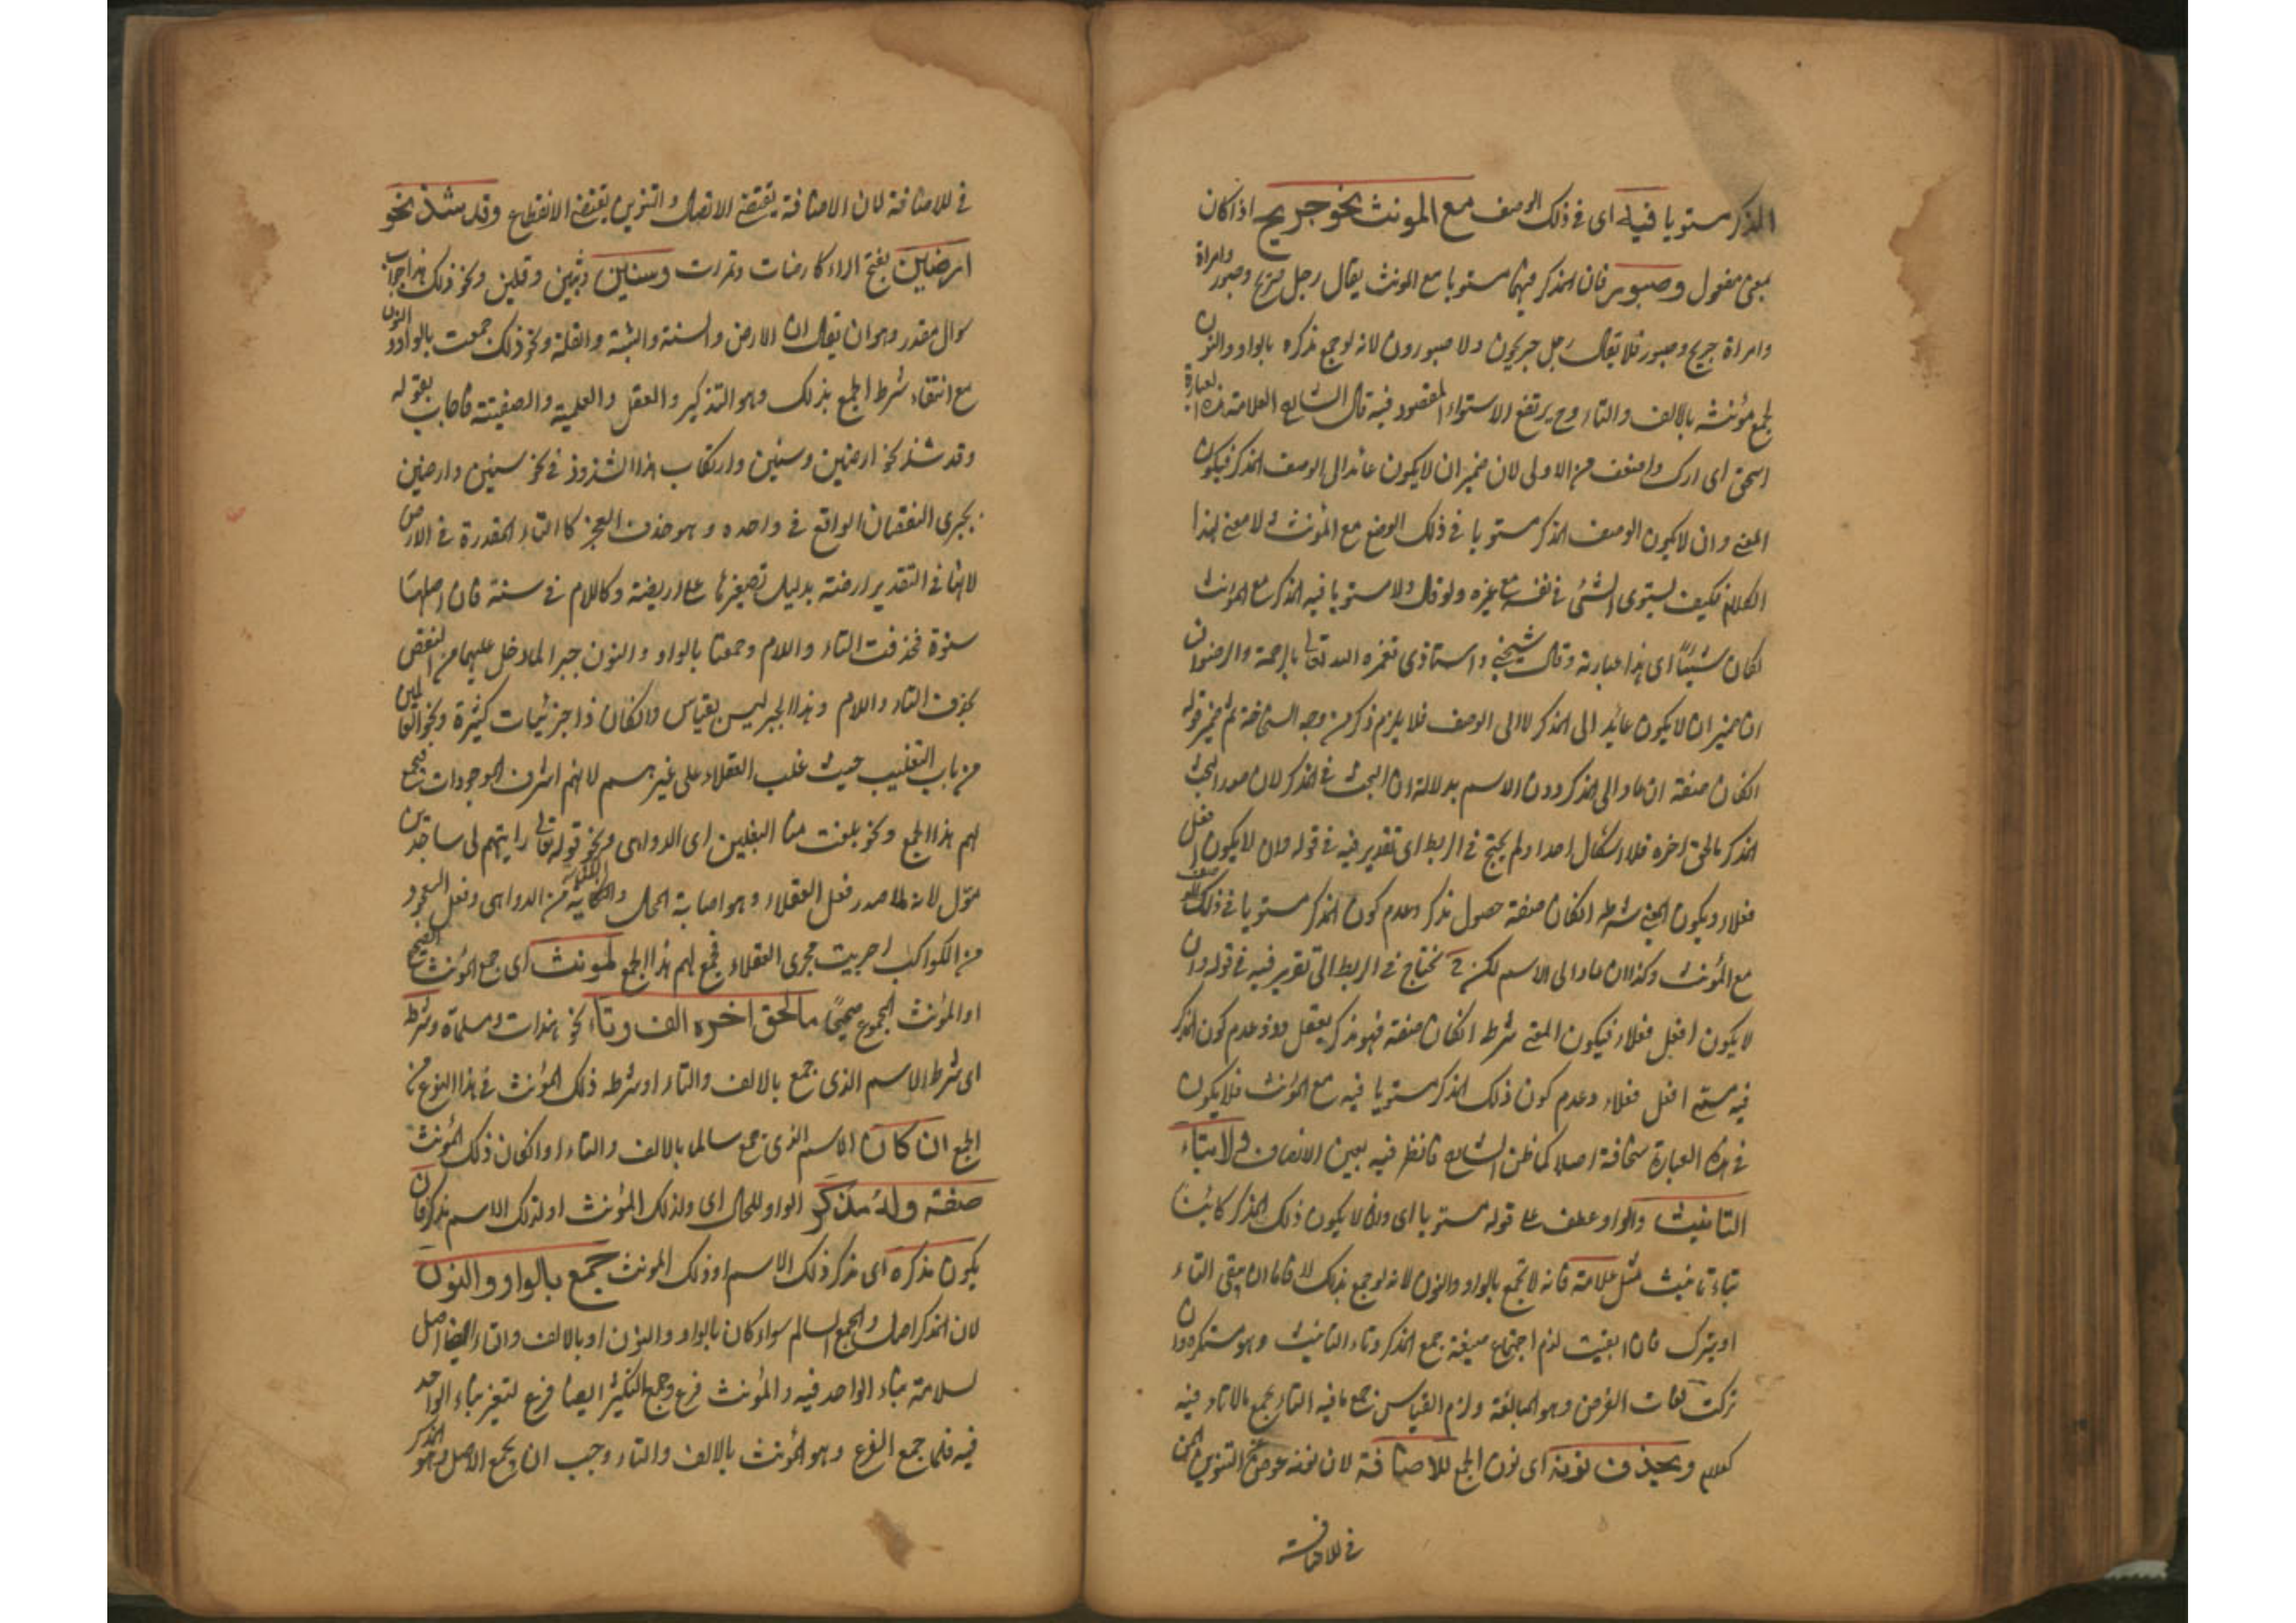 المذكر مستويا فيه اى فى ذلك الوصف مع المونث نحو جريح اذا كان
بمعنى مفعول وصبور فان المذكر فيهما مستويا مع المونث يقال رجل جريح وصبور وامراة
وامراة جريح وصبور فلا يقال رجل جريحون ولا صبورون لانه لو جمع مذكره بالواو والنون
لجمع مؤنثه بالالف والتاء وح يرتفع الاستواء المقصود فيه قال الشارح العلامة هذه العبارة
اسحق اى ارك واضعف من الاولى لان ضمير ان لا يكون عائد الى الوصف المذكر فيكون
المعنى وان لا يكون الوصف المذكر مستويا فى ذلك الوضع مع المؤنث ولا معنى لهذا
الكلام فكيف يستوى الشئ فى نفسه مع غيره ولو قال ولا مستويا فيه المذكر مع المؤنث
لكان شيئا اى هذا عبارته وقال شيخى واستاذى تغمده الله تعالى بالرحمة والرضوان
ان ضمير ان لا يكون عائد الى المذكر لا الى الوصف فلا يلزم ذكر من وجه السخافة ثم ضمير قوله
ان كان صفة ان عاد الى المذكر دون الاسم بدلالة ان البحث فى المذكر لان صدر البحث
المذكر ما لحق اخره فلا اشكال اصلا ولم يحتج فى الربط اى تقدير فيه فى قوله وان لا يكون افعل
فعلاء ويكون المعنى شرطه ان كان صفة حصول مذكر وعدم كون المذكر مستويا فى ذلك الوصف
مع المؤنث وكذا ان عاد الى الاسم لكن ح نحتاج فى الربط الى تقدير فيه فى قوله وان
لا يكون افعل فعلاء فيكون المعنى شرط ان كان صفة فهو مذكر يعقل وعدم كون المذكر
فيه افعل فعلاء وعدم كون ذلك المذكر مستويا فيه مع المؤنث فلا يكون
فى هذه العبارة سخافة اصلا كما ظن الشارح فانظر فيه بعين الانصاف ولا بتاء
التانيث والواو عطف على قوله مستويا اى وان لا يكون ذلك المذكر كائنا
بتاء تانيث مثل علامة فانه لا يجمع بالواو والنون لانه لو جمع بذلك فاما ان يبقى التاء
او يترك فان ابقيت لزم اجتماع صيغة جمع المذكر وتاء التانيث وهو مستكره وان
تركت لفات الغرض وهو المبالغة ولزم القياس جمع ما فيه التاء بجمع ما لا تاء فيه
كعلام ويحذف نونه اى نون الجمع للاضافة لان نونه عوض عن التنوين
فى للاضافة
فى للاضافة لان الاضافة يقتضى الاتصال والتنوين يقتضى الانقطاع وقد شذ نحو
ارضين بفتح الراء كارضات وتمرات وسنين وثبين وقلين ونحو ذلك هذا جواب
سوال مقدر وهو ان يقال ان الارض والسنة والثبة والقلة ونحو ذلك جمعت بالواو والنون
مع انتفاء شرط الجمع بذلك وهو التذكير والعقل والعلمية والصفية فاجاب بقوله
وقد شذ نحو ارضين وسنين وارتكاب هذا الشذوذ فى نحو سنين وارضين
يجرى النقصان الواقع فى واحده وهو حذف العجز كالتاء المقدرة فى الارض
لانها فى التقدير ارضة بدليل تصغيرها على اريضة وكاللام فى سنة فان اصلها
سنوة فحذفت التاء واللام وجمعتا بالواو والنون جبرا لما دخل عليهما من النقص
بحذف التاء واللام وهذا الجبر ليس بقياس وان كان ذا جزئيات كثيرة ونحو العالمين
من باب التغليب حيث غلب العقلاء على غيرهم لانهم اشرف الموجودات فجمع
لهم هذا الجمع ونحو بلغت منا البغلين اى الدواهى ونحو قوله تعالى رايتهم لى ساجدين
مؤل لانه لما صدر فعل العقلاء وهو اصابة الحال والنكاية من الدواهى وفعل السجود
من الكواكب اجريت مجرى العقلاء فجمع لهم هذا الجمع المونث اى جمع المؤنث الصحيح
او المؤنث المجموع صحيحًا ما لحق اخره الف وتاء نحو هندات ومسلمات وشرطه
اى شرط الاسم الذى جمع بالالف والتاء او شرطه ذلك المؤنث فى هذا النوع من
الجمع ان كان الاسم الذى جمع سالما بالالف والتاء او ان كان ذلك المؤنث
صفة وله مذكر الواو للحال اى ولذلك المؤنث او لذلك الاسم مذكر فان
يكون مذكره اى مذكر ذلك الاسم او ذلك المونث جمع بالواو والنون
لان المذكر اصل والجمع السالم سواء كان بالواو والنون او بالالف والتاء ايضا اصل
لسلامة بناء الواحد فيه والمؤنث فرع وجمع التكثير ايضا فرع لتغير بناء الواحد
فيه فلما جمع الفرع وهو المؤنث بالالف والتاء وجب ان يجمع الاصل وهو المذكر